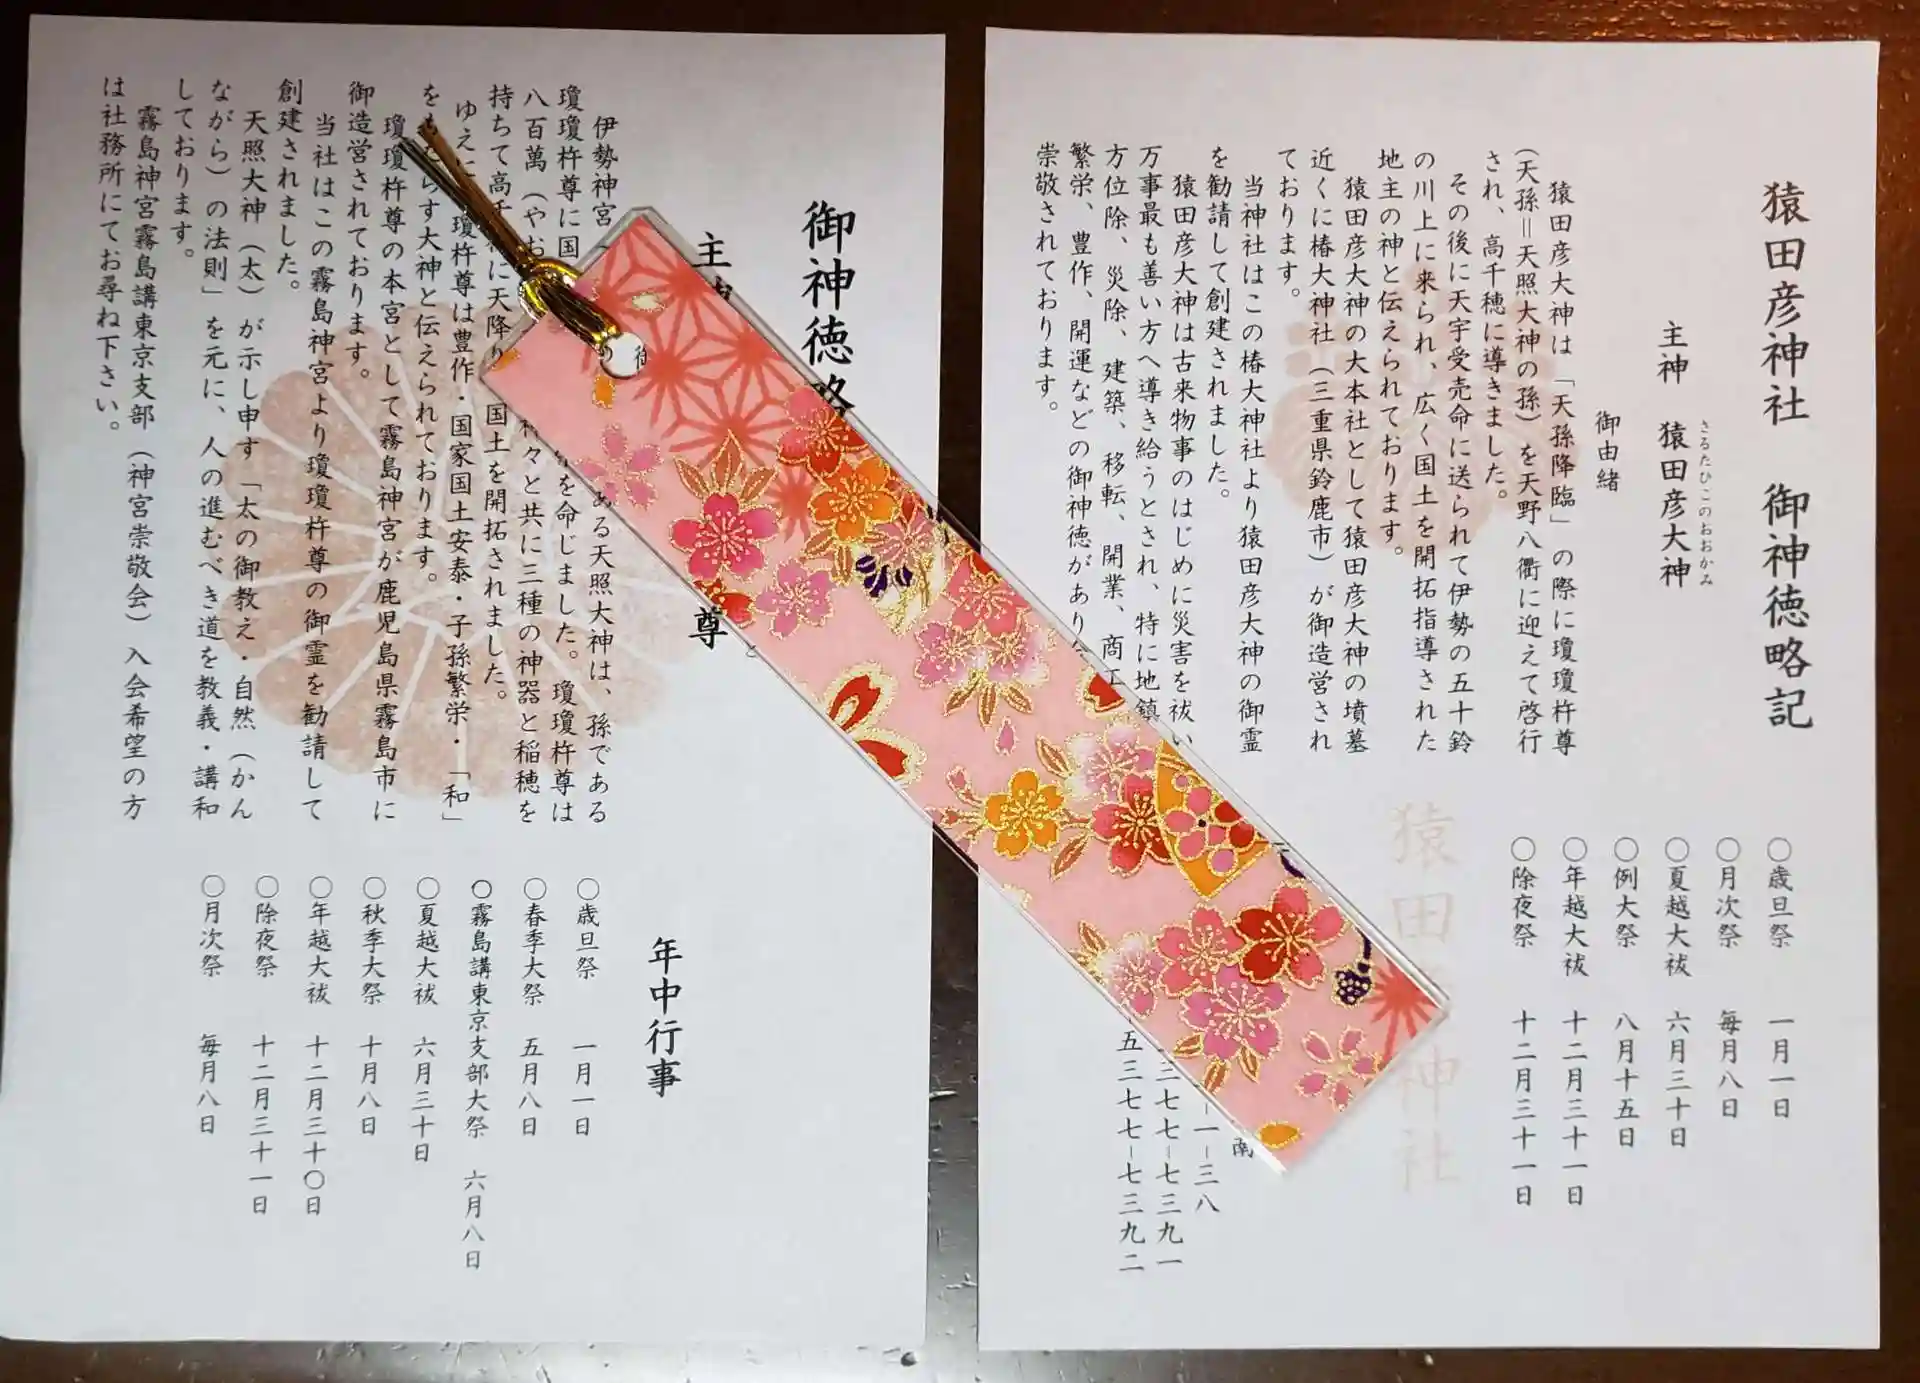 猿田彦神社 御神徳略記
主神 猿田彦大神
さるたひこのおおかみ
御由緒
猿田彦大神は「天孫降臨」の際に瓊瓊杵尊
（天孫＝天照大神の孫）を天野八衢に迎えて啓行
され、高千穂に導きました。
その後に天宇受売命に送られて伊勢の五十鈴
の川上に来られ、広く国土を開拓指導された
地主の神と伝えられております。
猿田彦大神の大本社として猿田彦大神の墳墓
近くに椿大神社（三重県鈴鹿市）が御造営され
ております。
当神社はこの椿大神社より猿田彦大神の御霊
を勧請して創建されました。
猿田彦大神は古来物事のはじめに災害を祓い
万事最も善い方へ導き給うとされ、特に地鎮
方位除、災除、建築、移転、開業、商工
繁栄、豊作、開運などの御神徳があり
崇敬されております。
〇歳旦祭 一月一日
〇月次祭 毎月八日
〇夏越大祓 六月三十日
〇例大祭 八月十五日
〇年越大祓 十二月三十一日
〇除夜祭 十二月三十一日
猿田 神社
南
一－三八
三七七－七三九一
五三七七－七三九二
御神徳略
主
尊
伊勢神宮 ある天照大神は、孫である
瓊瓊杵尊に国 を命じました。瓊瓊杵尊は
八百萬（やお 々と共に三種の神器と稲穂を
持ちて高千穂に天降り 国土を開拓されました。
ゆえに 瓊杵尊は豊作・国家国土安泰・子孫繁栄・「和」
をもたらす大神と伝えられております。
瓊瓊杵尊の本宮として霧島神宮が鹿児島県霧島市に
御造営されております。
当社はこの霧島神宮より瓊瓊杵尊の御霊を勧請して
創建されました。
天照大神（太）が示し申す「太の御教え・自然（かん
ながら）の法則」を元に、人の進むべき道を教義・講和
しております。
霧島神宮霧島講東京支部（神宮崇敬会）入会希望の方
は社務所にてお尋ね下さい。
年中行事
〇歳旦祭 一月一日
〇春季大祭 五月八日
〇霧島講東京支部大祭 六月八日
〇夏越大祓 六月三十日
〇秋季大祭 十月八日
〇年越大祓 十二月三十〇日
〇除夜祭 十二月三十一日
〇月次祭 毎月八日